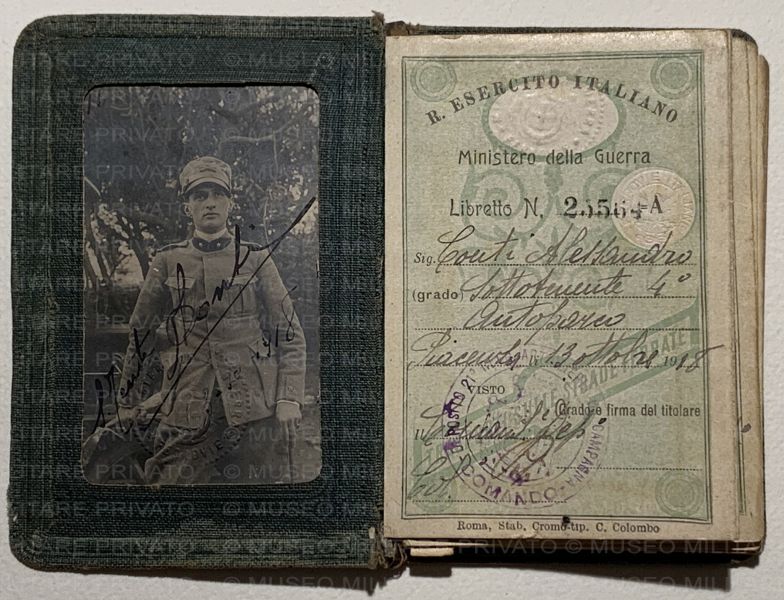 A Conti
1918
R. ESERCITO ITALIANO
Ministero della Guerra
Libretto N. 25564=A
Sig. Conti Alessandro
(grado) Sottotenente 4°
Autoparco
Piacenza li 13 ottobre 1918
VISTO
Grado e firma del titolare
Il
DEPOSITO
CAMPAGNA
COMANDO
Roma, Stab. Cromo-tip. C. Colombo
© MUSEO MILITARE PRIVATO